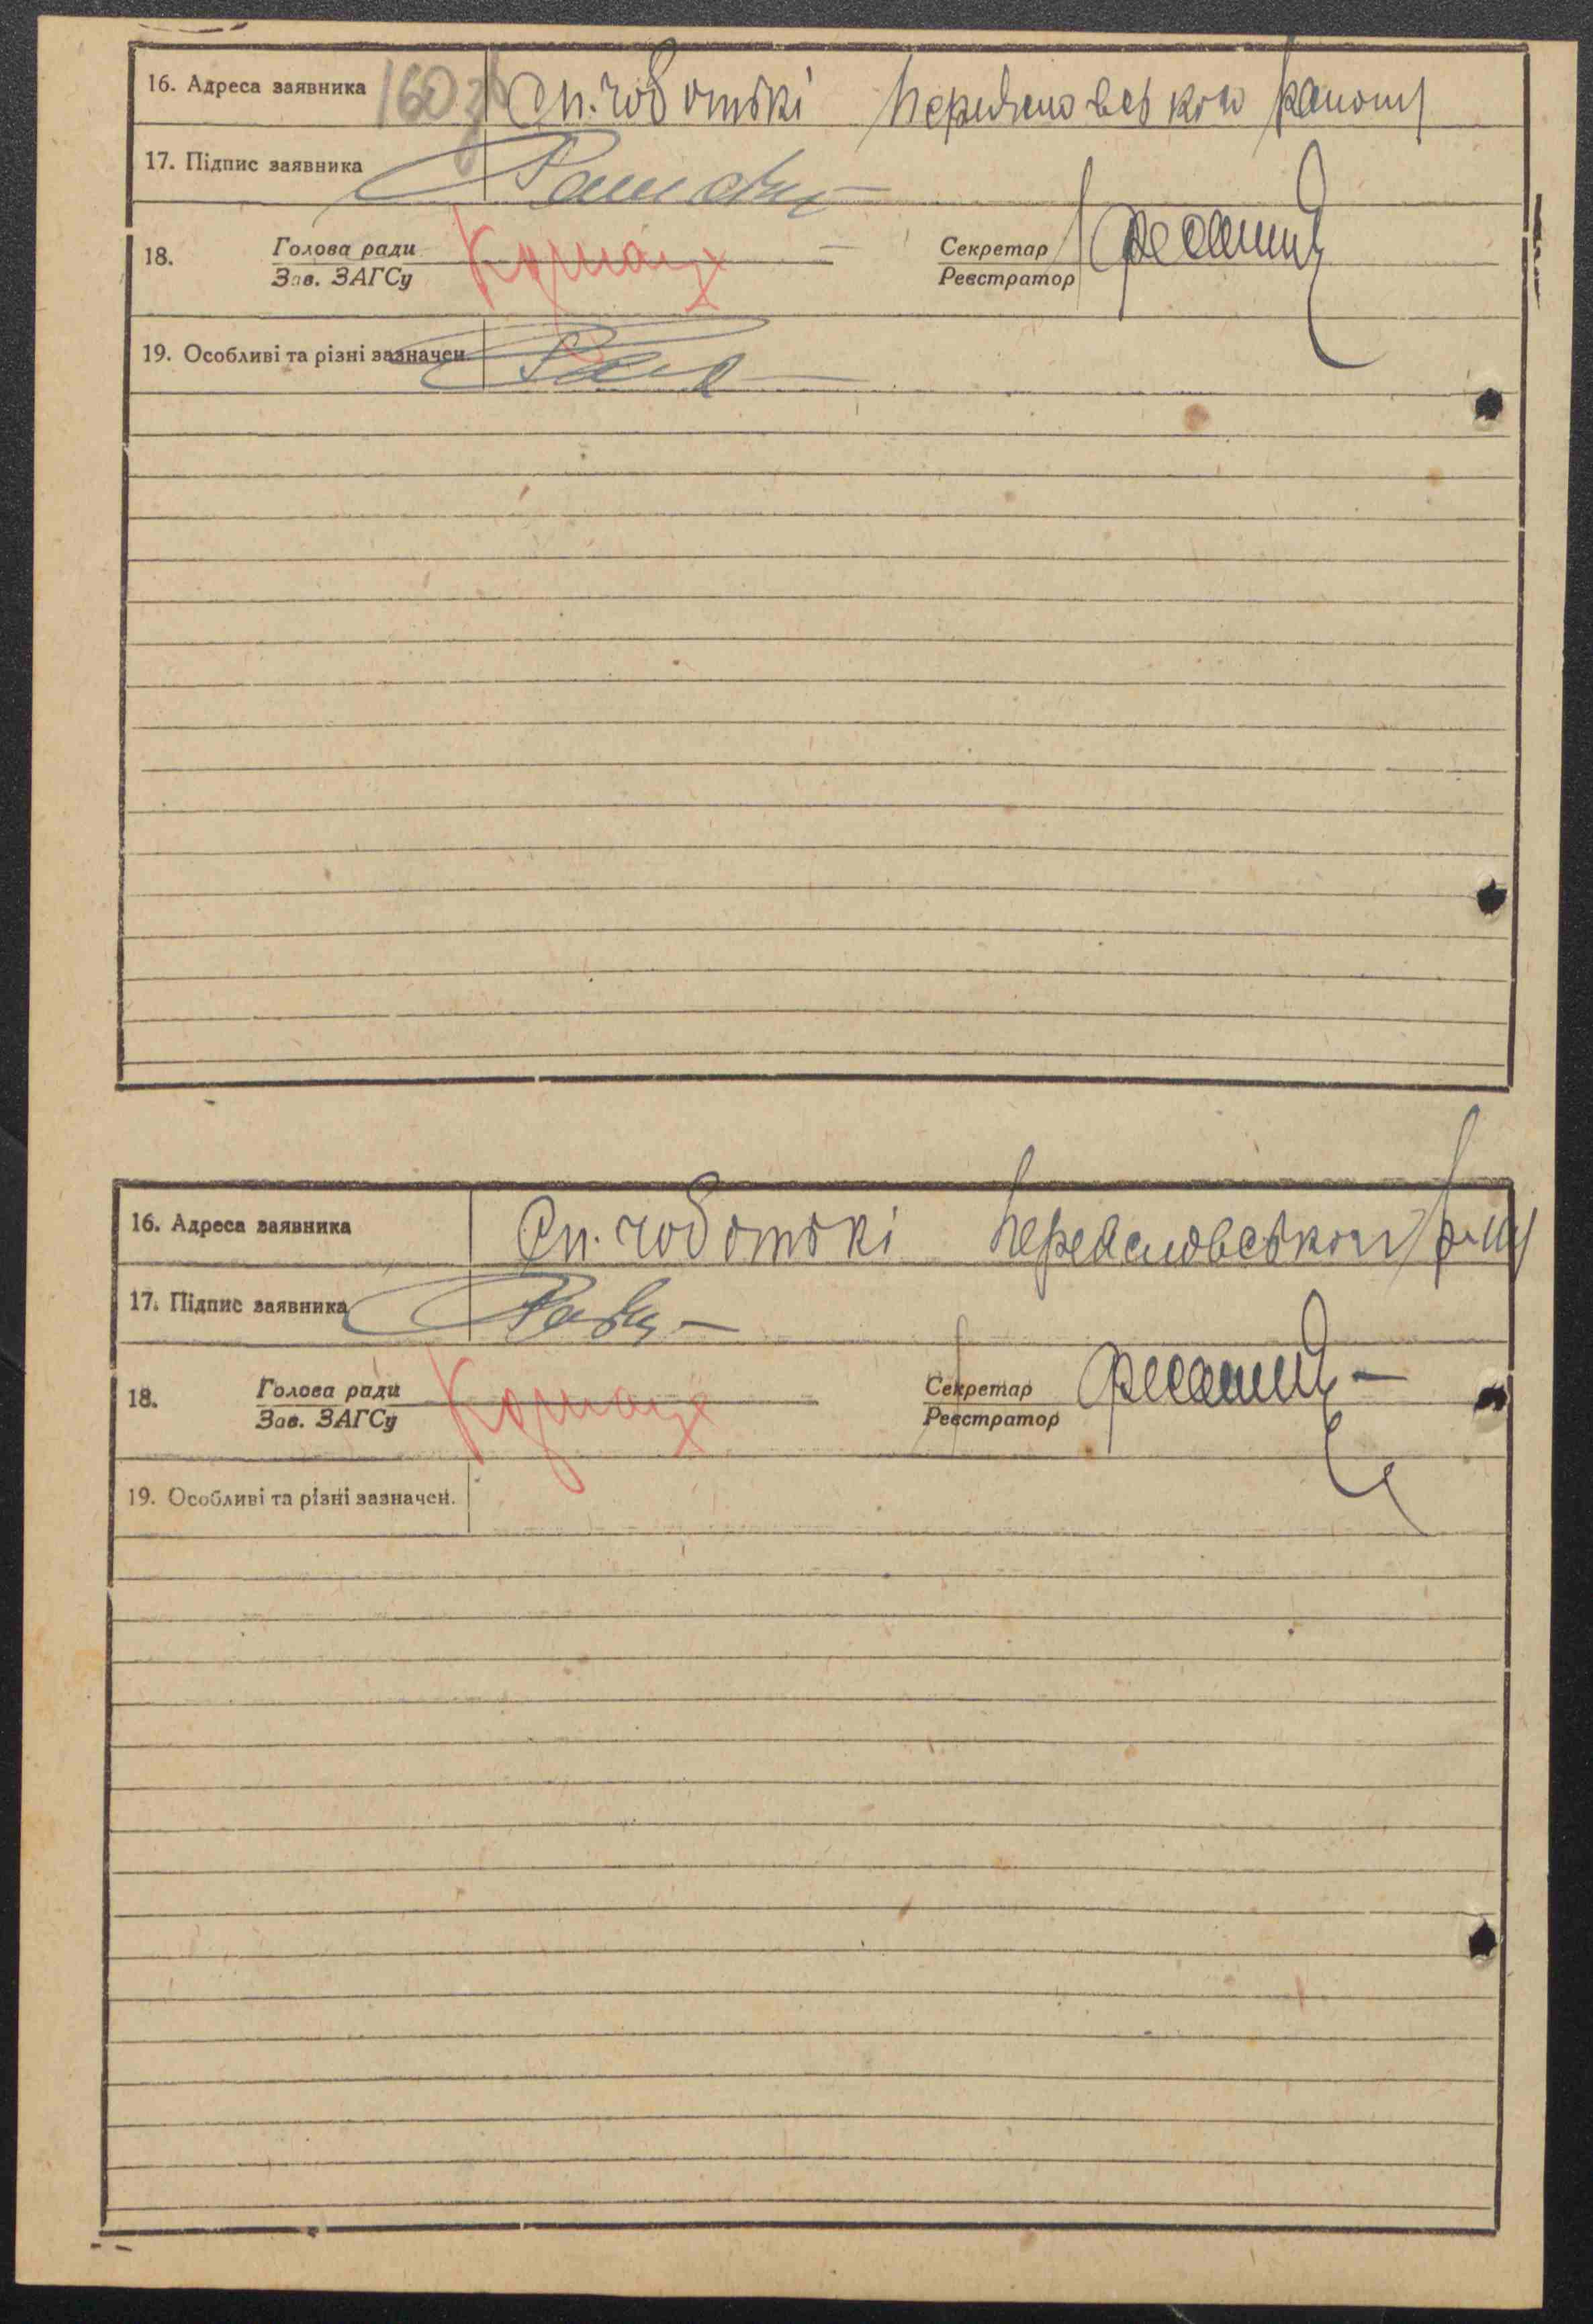 16. Адреса заявника 160 зв Сп. Чоботькі Переяславського району
17. Підпис заявника
18. Голова ради Секретар
Зав. ЗАГСу Реєстратор
19. Особливі та різні зазначен.
16. Адреса заявника Сп. Чоботькі Переяславського р-ну
17. Підпис заявника
18. Голова ради Секретар
Зав. ЗАГСу Реєстратор
19. Особливі та різні зазначен.